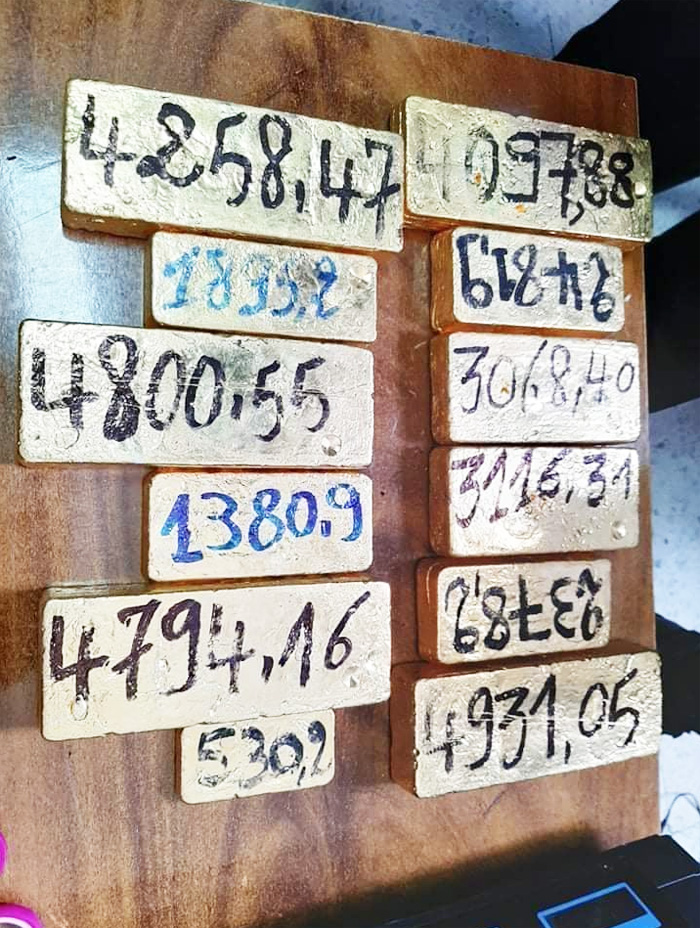 4258,47
4097,88
1895,2
2481,9
4800,55
3068,40
1380,9
3116,31
4794,16
2378,9
530,2
4931,05